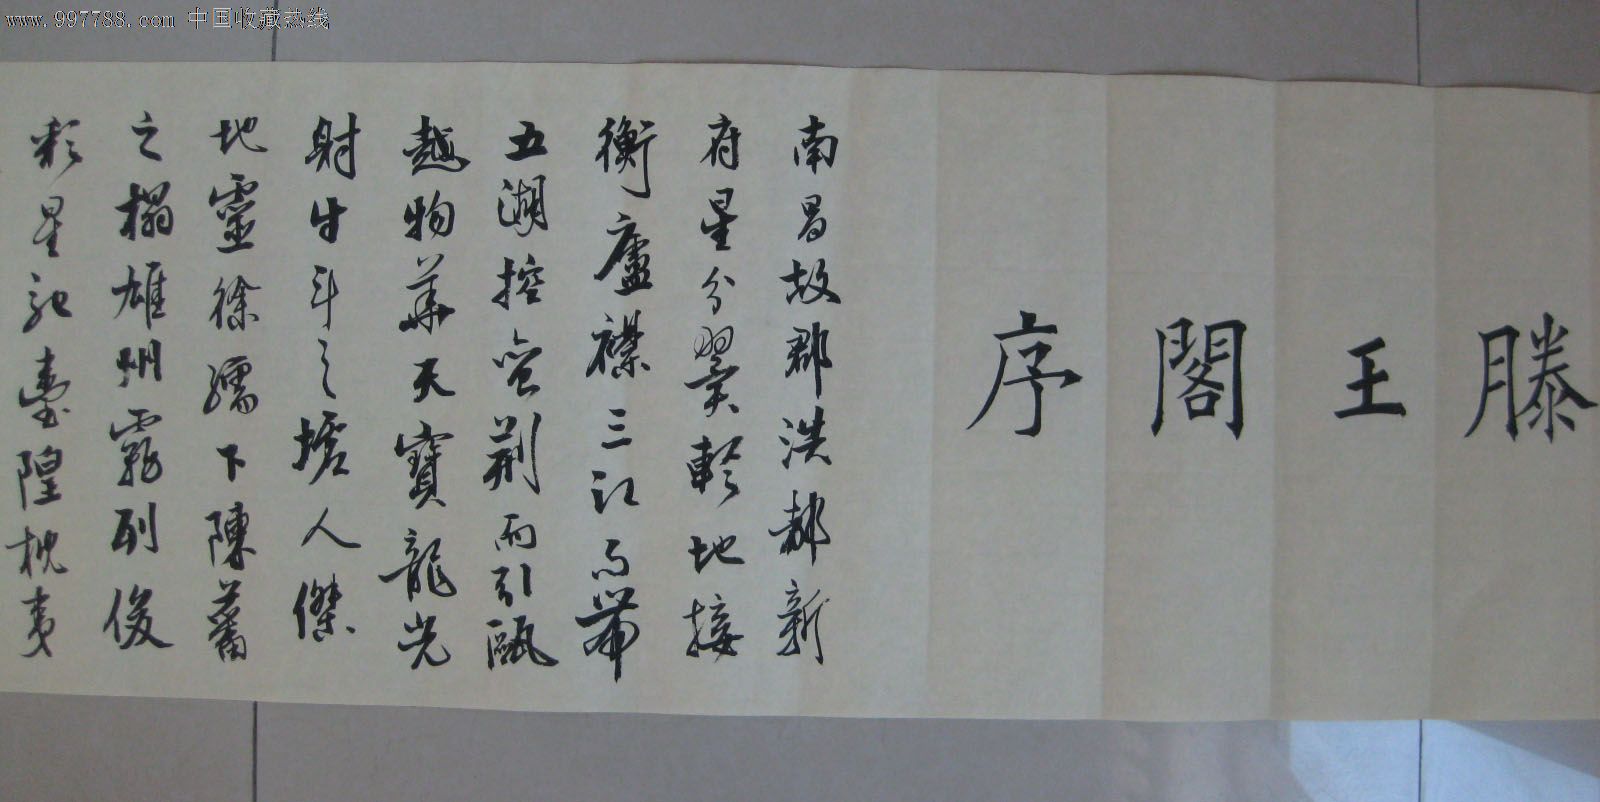 www.997788.com 中国收藏热线
滕王閣序
南昌故郡洪都新
府星分翼軫地接
衡廬襟三江而帶
五湖控蠻荊而引甌
越物華天寶龍光
射牛斗之墟人傑
地靈徐孺下陳蕃
之榻雄州霧列俊
彩星馳臺隍枕夷